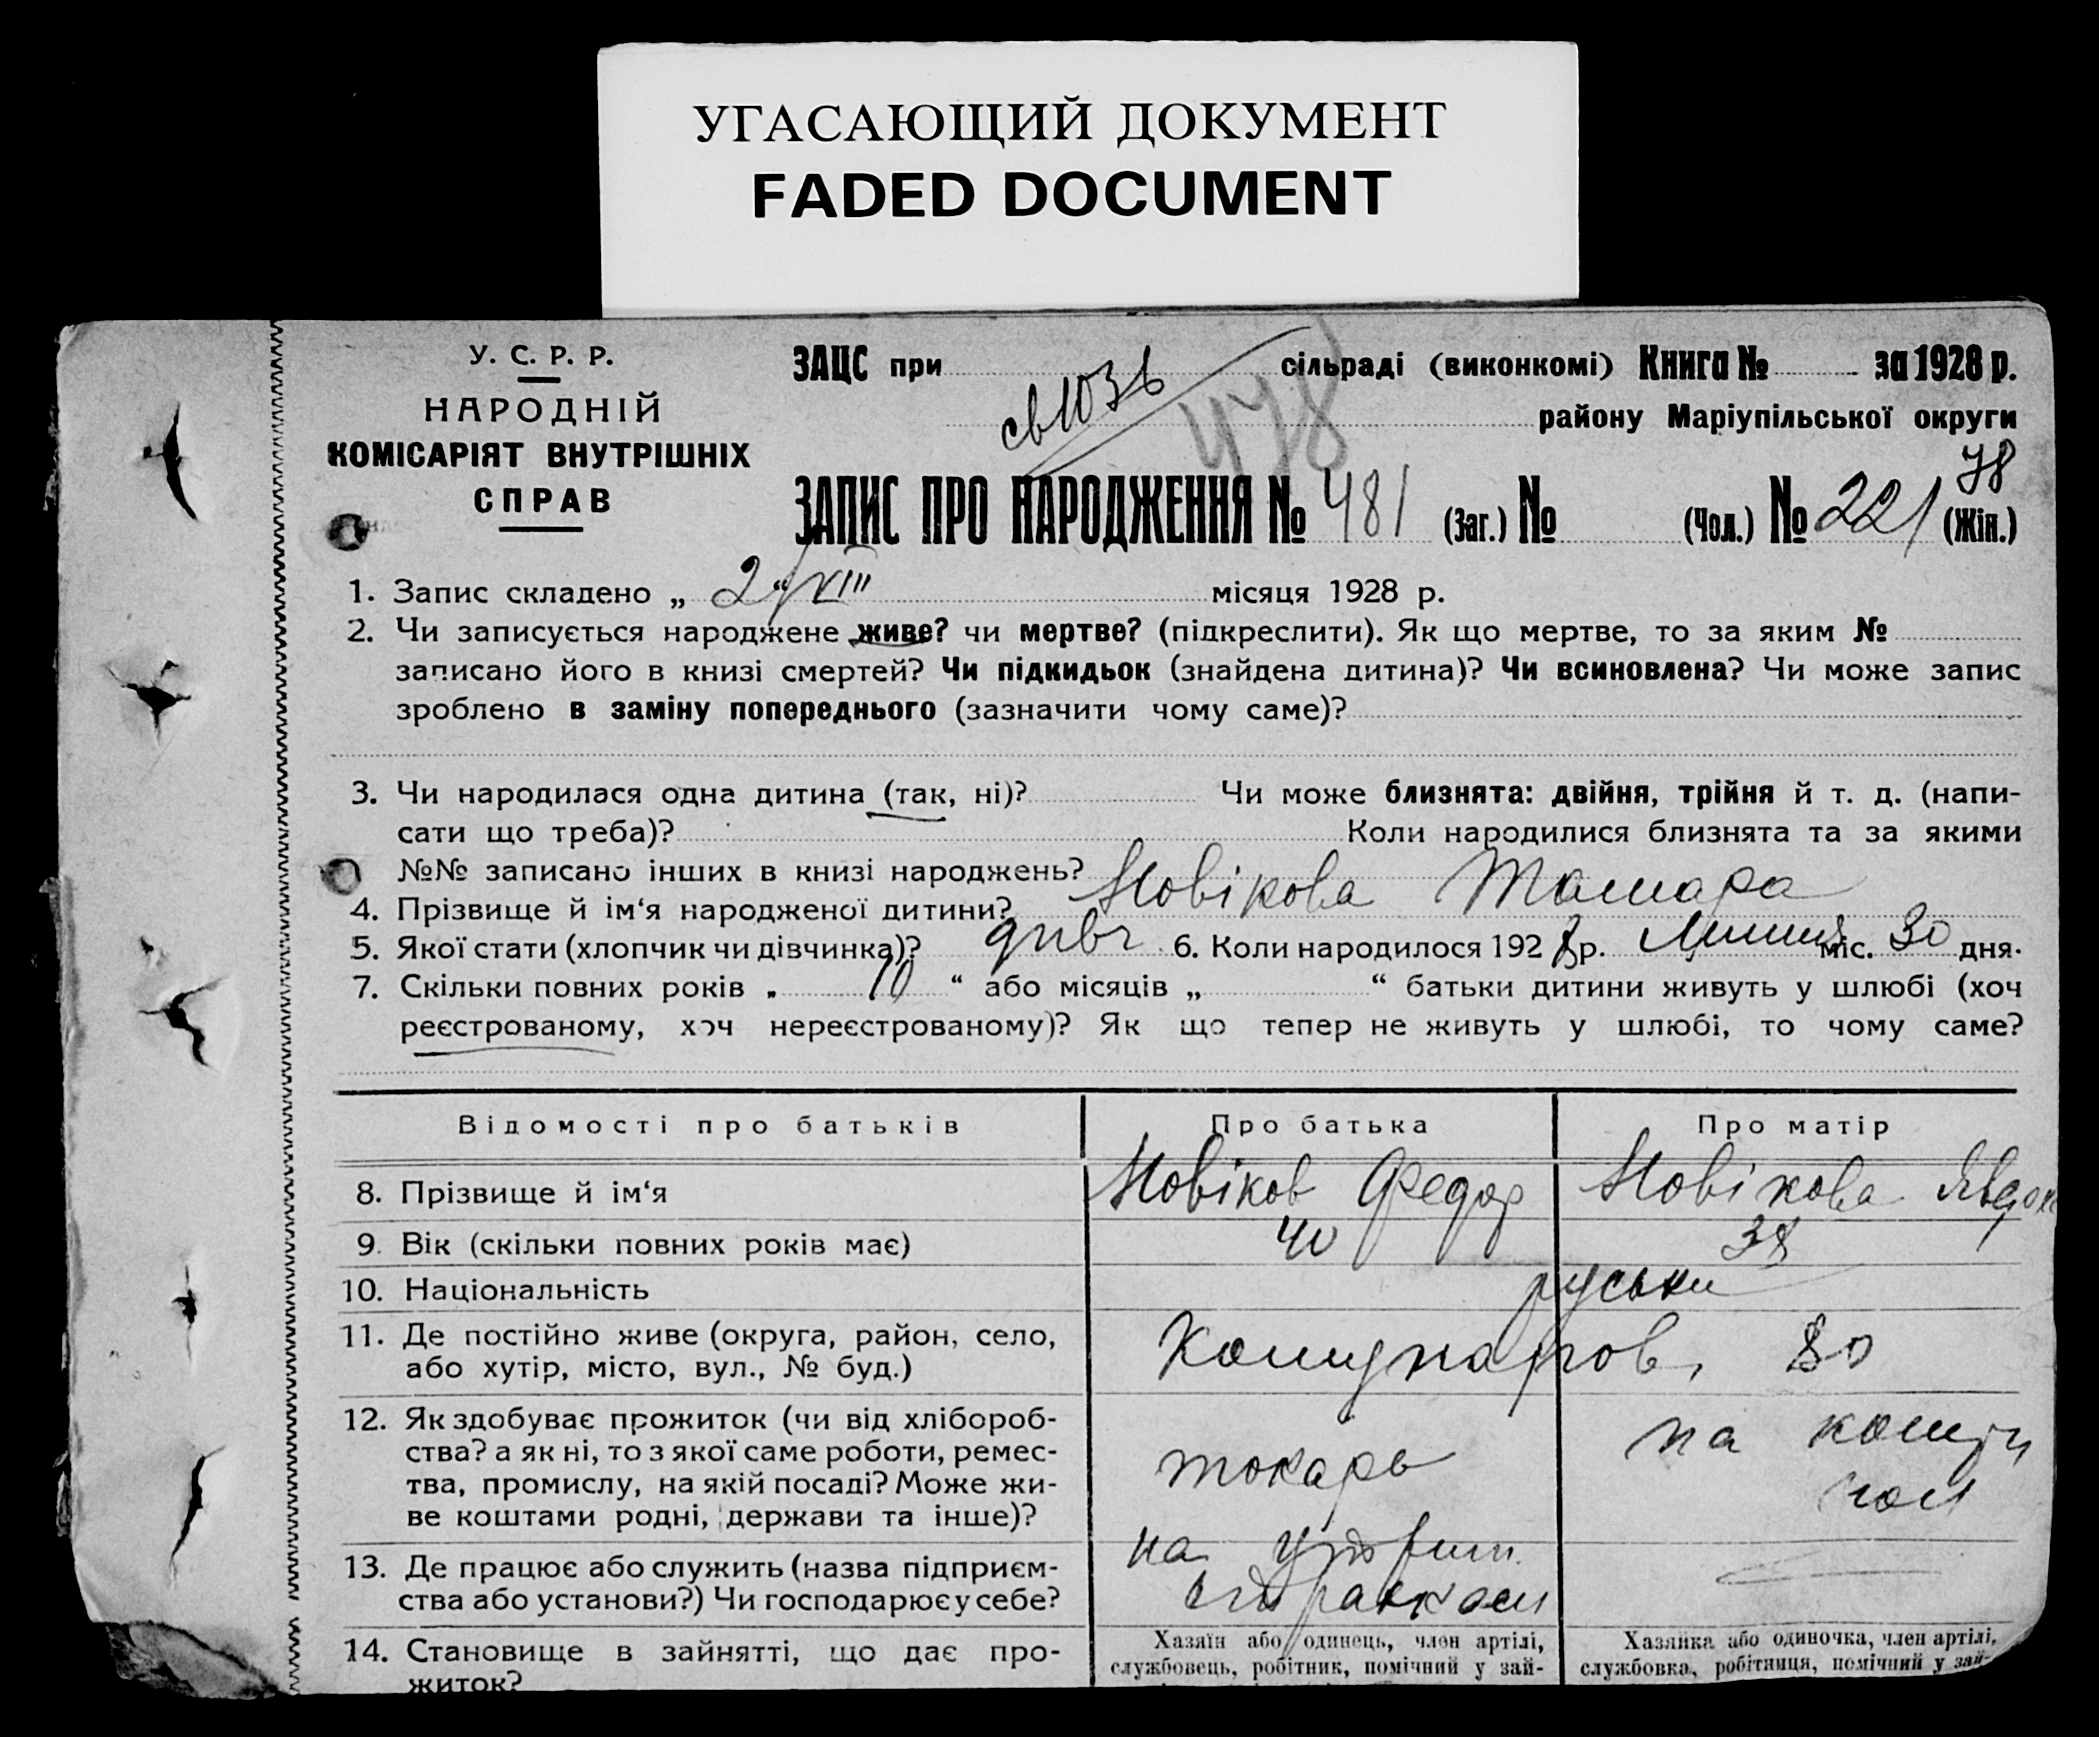 УГАСАЮЩИЙ ДОКУМЕНТ
FADED DOCUMENT
У. С. Р. Р.
НАРОДНІЙ
КОМІСАРІЯТ ВНУТРІШНІХ
СПРАВ
ЗАЦС при сільраді (виконкомі) Книга № за 1928 р.
св 103 ь
478
району Маріупільської округи
78
ЗАПИС ПРО НАРОДЖЕННЯ № 481 (Заг.) № (Чол.) № 221 (Жін.)
1. Запис складено „ 2 “ VIII місяця 1928 р.
2. Чи записується народжене живе? чи мертве? (підкреслити). Як що мертве, то за яким №
записано його в книзі смертей? Чи підкидьок (знайдена дитина)? Чи всиновлена? Чи може запис
зроблено в заміну попереднього (зазначити чому саме)?
3. Чи народилася одна дитина (так, ні)? Чи може близнята: двійня, трійня й т. д. (напи-
сати що треба)? Коли народилися близнята та за якими
№№ записано інших в книзі народжень?
4. Прізвище й ім‘я народженої дитини? Новікова Тамара
5. Якої статі (хлопчик чи дівчинка)? дівч 6. Коли народилося 1928 р. Липня міс. 30 дня.
7. Скільки повних років „ 10 “ або місяців „ “ батьки дитини живуть у шлюбі (хоч
реєстрованому, хоч нереєстрованому)? Як що тепер не живуть у шлюбі, то чому саме?
Відомості про батьків Про батька Про матір
8. Прізвище й ім‘я Новіков Федор Новікова Явдох
9. Вік (скільки повних років має) 40 38
10. Національність руськи
11. Де постійно живе (округа, район, село,
або хутір, місто, вул., № буд.) Комунаров, 80
12. Як здобуває прожиток (чи від хлібороб-
ства? а як ні, то з якої саме роботи, ремес-
тва, промислу, на якій посаді? Може жи-
ве коштами родні, держави та інше)?
токарь
на
13. Де працює або служить (назва підприєм-
ства або установи?) Чи господарює у себе?
на
14. Становище в зайнятті, що дає про-
житок?
Хазяїн або одинець, член артілі,
службовець, робітник, помічний у зай-
Хазяйка або одиночка, член артілі,
службовка, робітниця, помічний у зай-